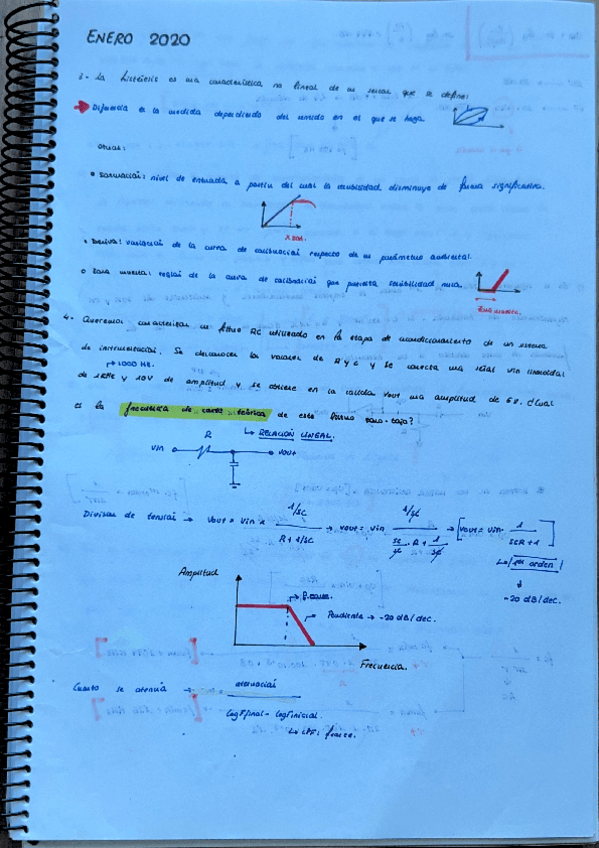 ENERO 2020
3- La histéresis es una característica no lineal de un sensor que se define:
Diferencia en la medida dependiendo del sentido en el que se haga.
otras:
• Saturación: nivel de entrada a partir del cual la sensibilidad disminuye de forma significativa.
• Deriva: variación de la curva de calibración respecto de un parámetro ambiental.
• Zona muerta: región de la curva de calibración que presenta sensibilidad nula.
Zona muerta.
4- Queremos caracterizar un filtro RC utilizado en la etapa de acondicionamiento de un sistema
de instrumentación. Se desconocen los valores de R y C y se conecta una señal Vin sinusoidal
→ 1000 Hz.
de 1KHz y 10V de amplitud y se obtiene en la salida Vout una amplitud de 6V. ¿Cuál
es la frecuencia de corte teórica de este filtro paso-bajo?
↳ RELACIÓN LINEAL.
R
Vin
Vout
Divisor de tensión → Vout = Vin x 1/SC / R + 1/SC → Vout = Vin 1/SC / SC/SC · R + 1/SC → [Vout = Vin · 1 / SCR + 1]
↳ 1er orden
-20 dB/dec.
Amplitud
→ f. corte
→ Pendiente → -20 dB/dec.
Frecuencia.
Cuanto se atenúa → atenuación
log Ffinal - log Finicial.
↳ LPF: fcorte.